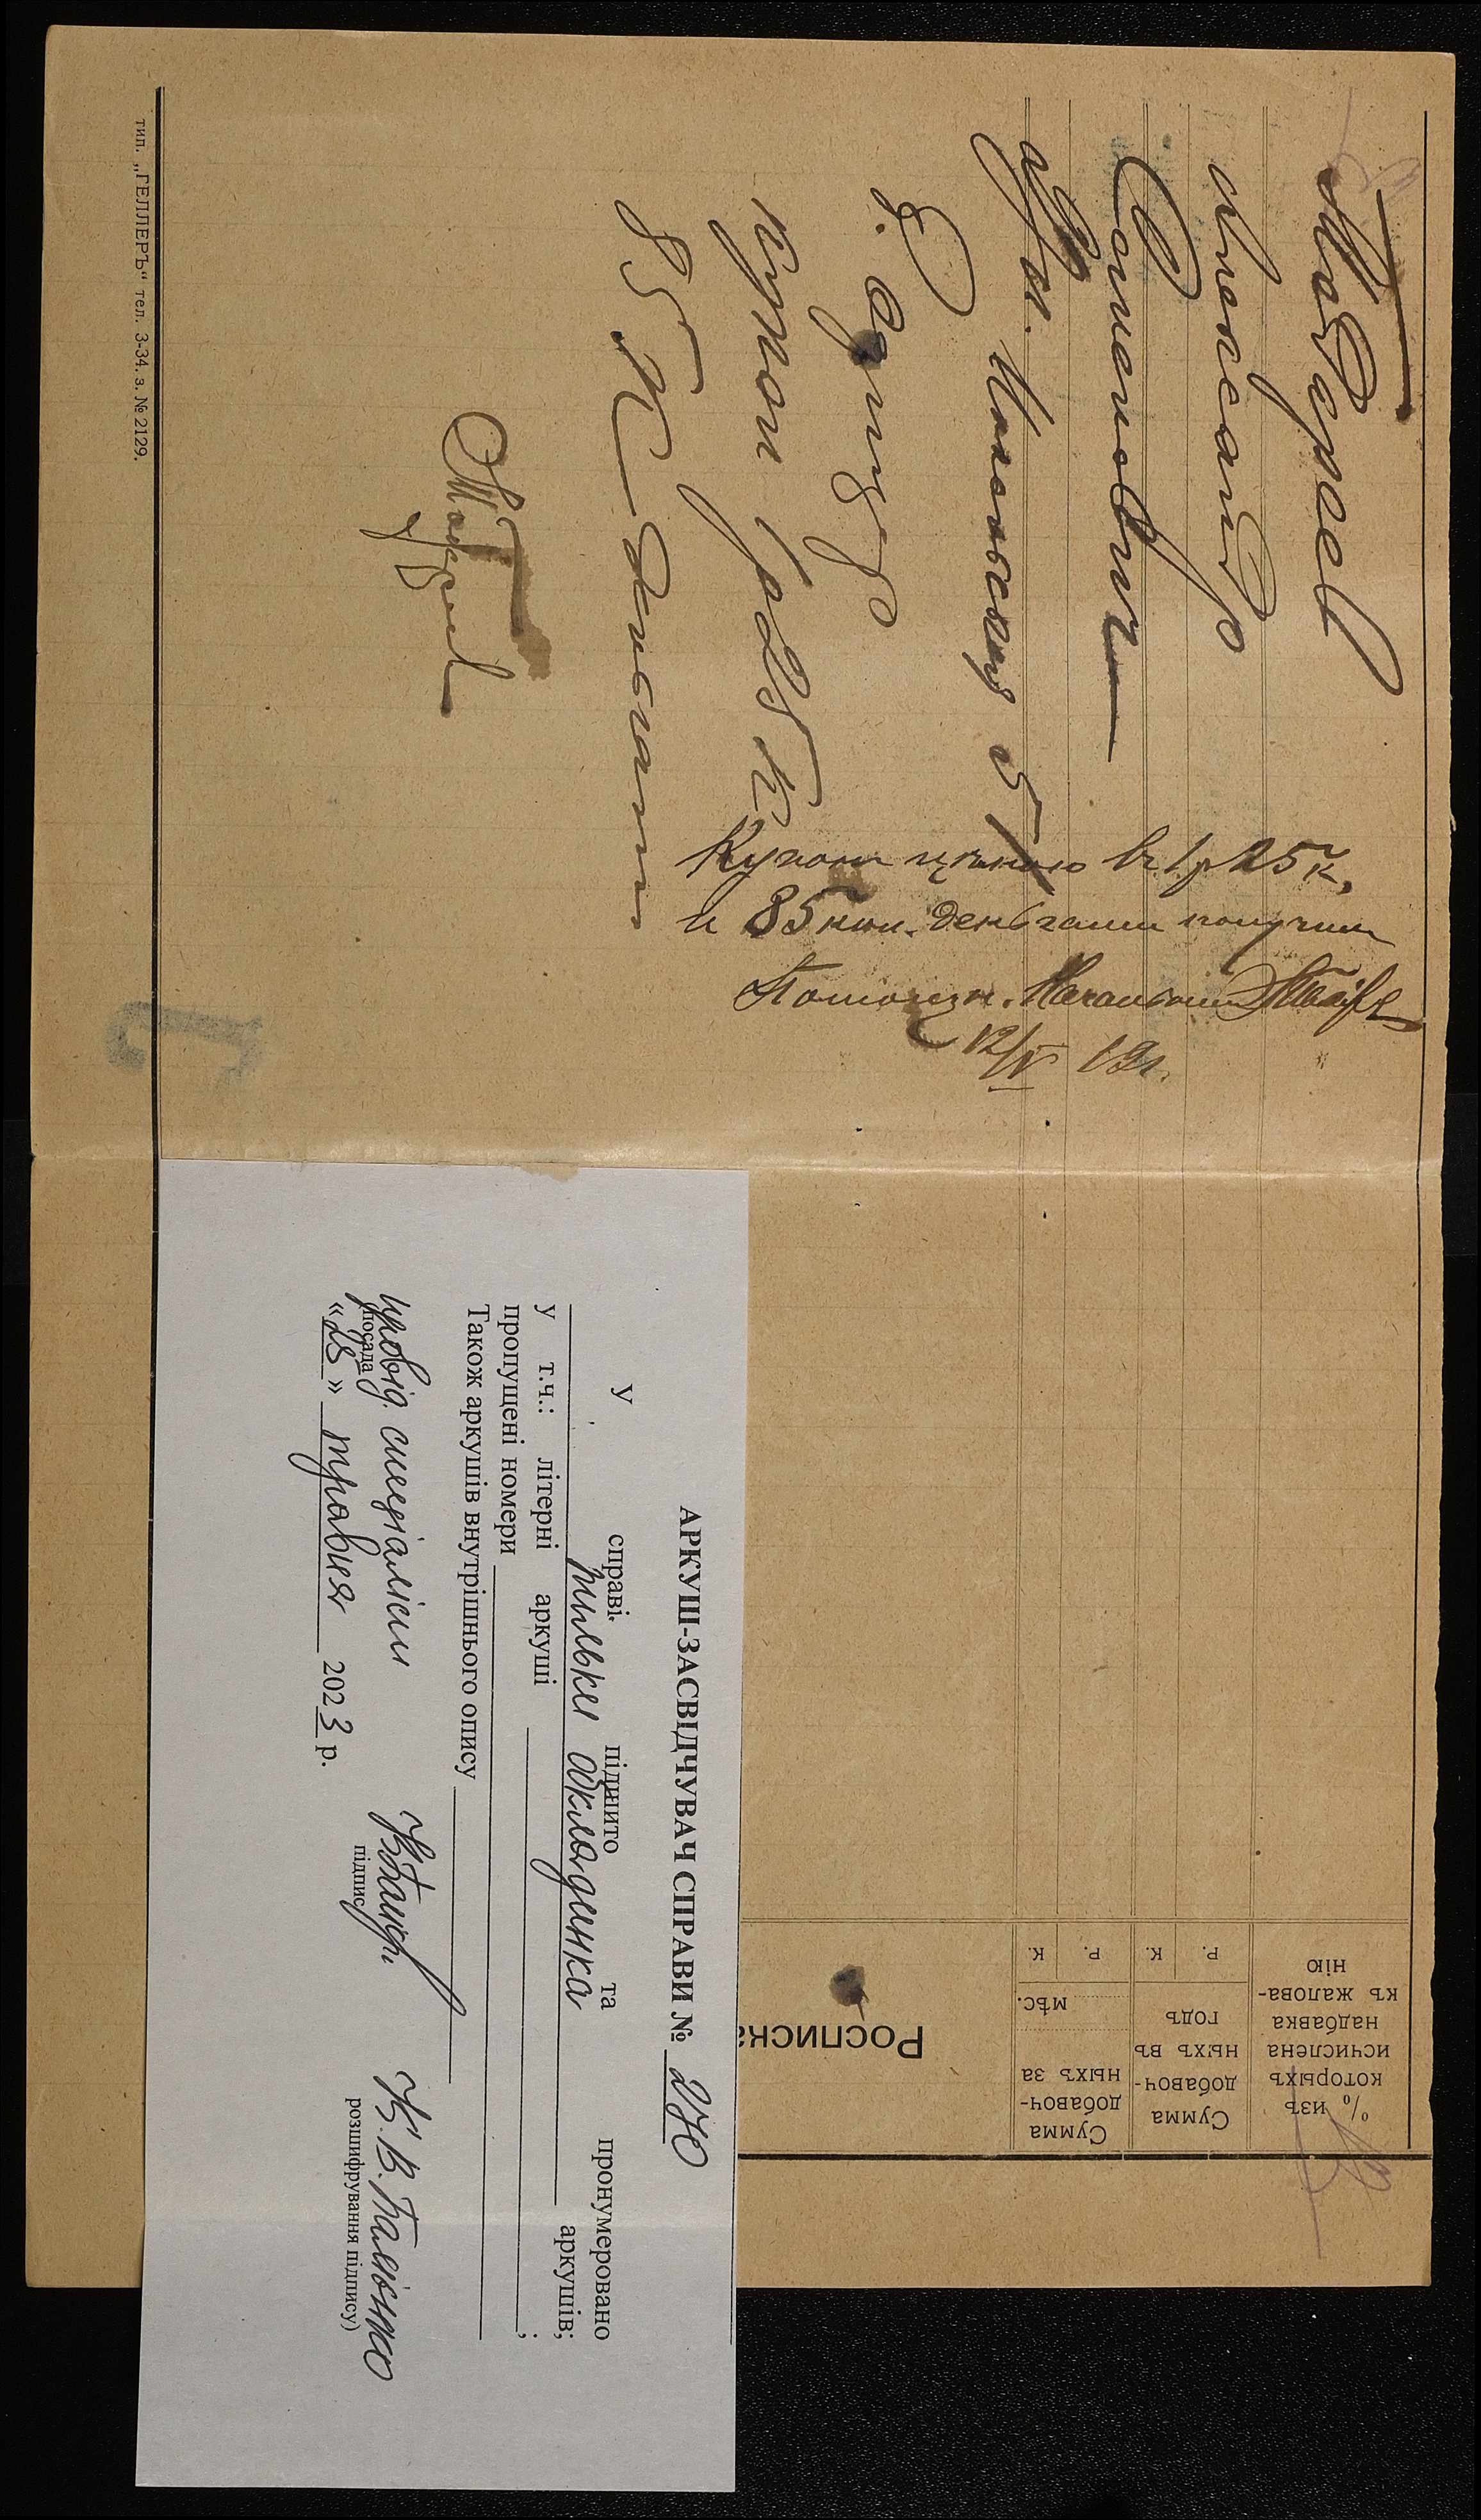 Токарев
Александр
Семенович
Никольская 5
г. Одесса
Купон 1р 25 к
85 к деньгами
Токарев
Купон ценою в 1 р 25 к,
и 85 коп. деньгами получил
Помощн. Начальника
12/IV 19г.
тип. „ГЕЛЛЕРЪ“ тел. 3-34. з. № 2129.
% изъ
которыхъ
исчислена
надбавка
къ жалова-
нію
Сумма
добавоч-
ныхъ въ
годъ
Р. К.
Сумма
добавоч-
ныхъ за
мѣс.
Р. К.
Росписка
АРКУШ-ЗАСВІДЧУВАЧ СПРАВИ № 270
У справі підшито та пронумеровано
тільки обкладинка аркушів;
у т.ч.: літерні аркуші ;
пропущені номери
Також аркушів внутрішнього опису
провід. спеціаліст К. В. Балюнко
посада підпис розшифрування підпису)
«25» травня 2023 р.